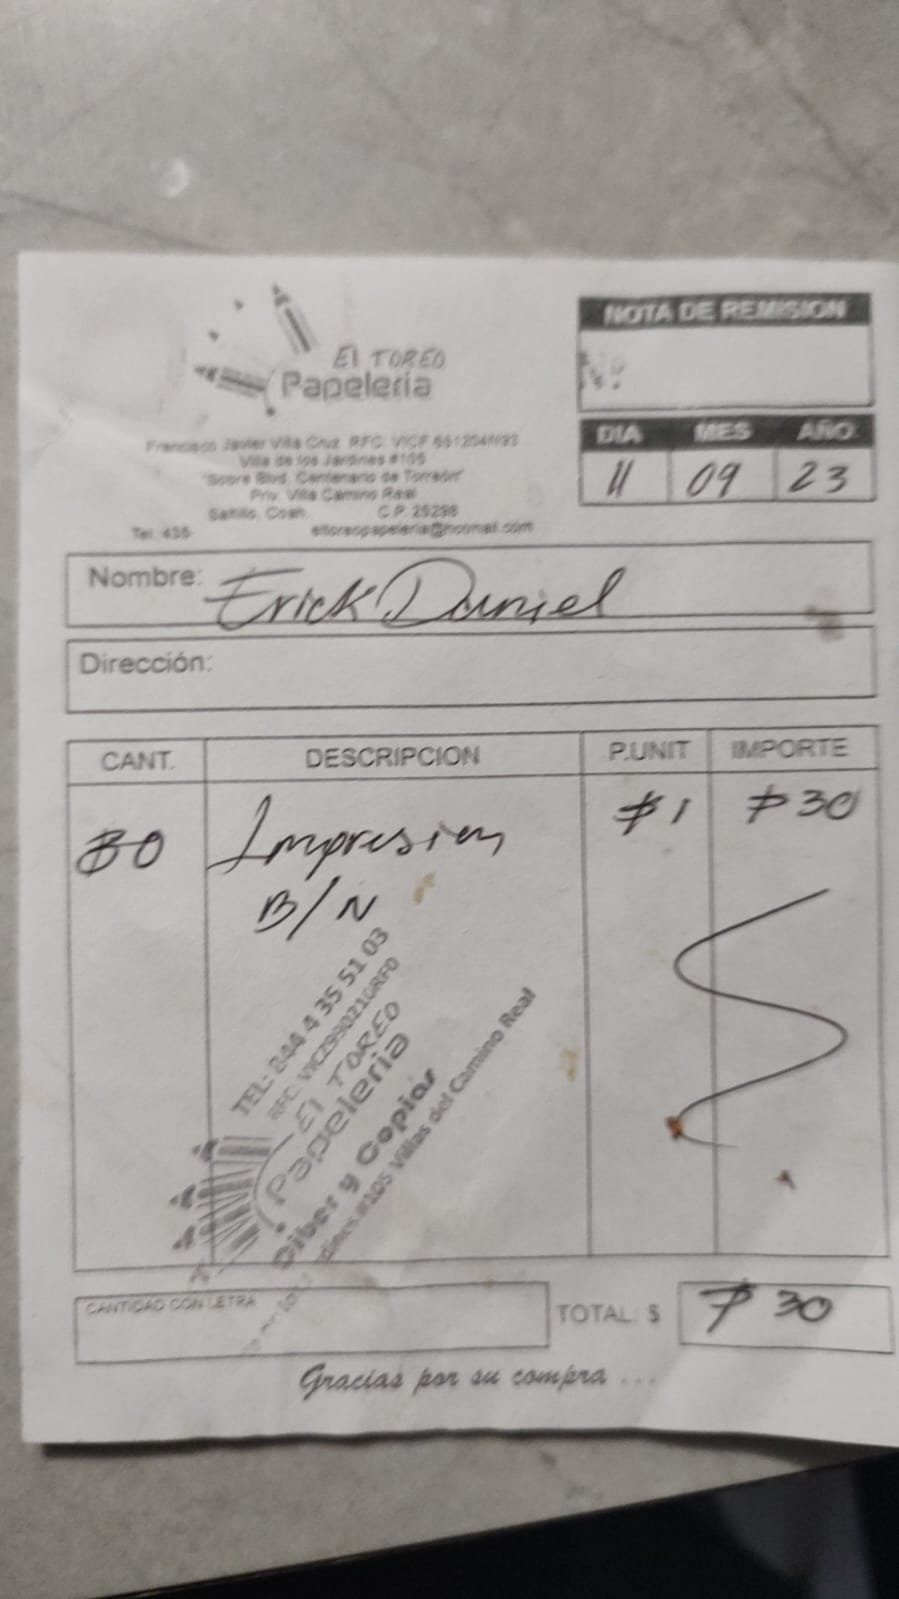 El TOREO
Papeleria
Francisco Javier Villa Cruz RFC: VICF
Villa de los Jardines #105
"Sobre Blvd. Centenario de Torreón"
Priv. Villa Camino Real
Saltillo, Coah. C.P. 25298
Tel. 435
eltoreopapeleria@hotmail.com
NOTA DE REMISION
Nº
DIA MES AÑO
11 09 23
Nombre: Erick Daniel
Dirección:
CANT. DESCRIPCION P.UNIT IMPORTE
30 Impresion $1 $30
B/N
TEL: 844 4 35 51 03
RFC: VICZ990210RF0
El TOREO
Papeleria
Ciber y Copias
#105 Villas del Camino Real
CANTIDAD CON LETRA
TOTAL: $ $30
Gracias por su compra ...